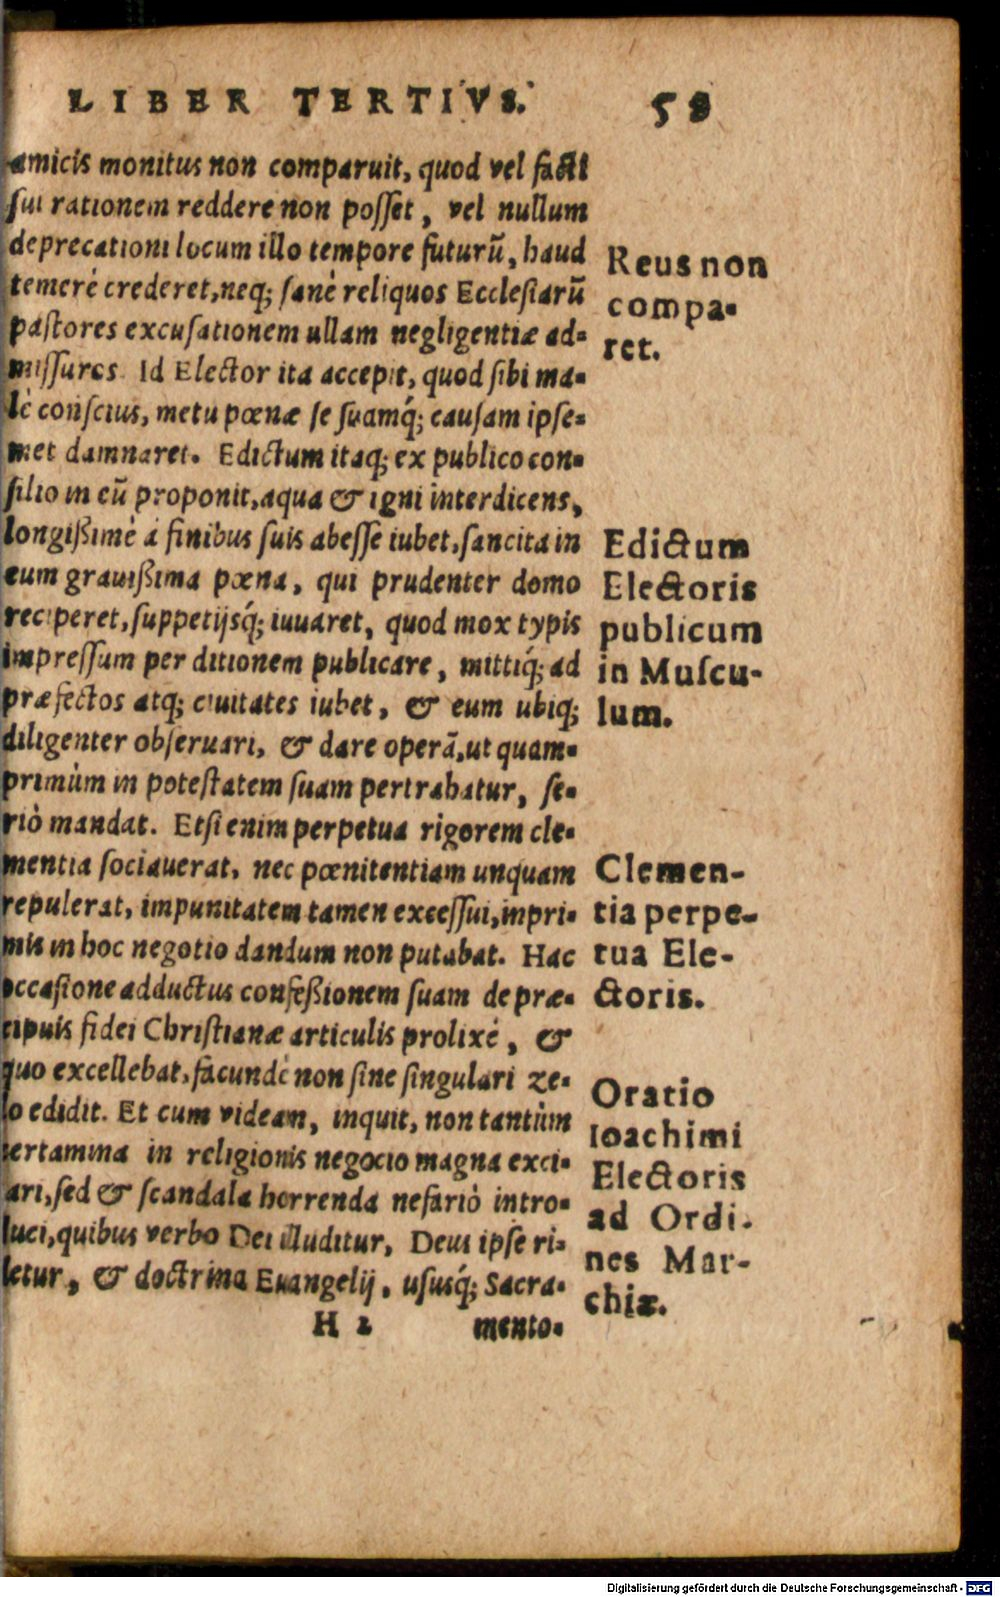 LIBER TERTIVS. 58
amicis monitus non comparuit, quod vel facti
sui rationem reddere non posset, vel nullum
deprecationi locum illo tempore futurũ, haud
temerè crederet, neq; sanè reliquos Ecclesiarũ
pastores excusationem ullam negligentiæ ad-
missuros. Id Elector ita accepit, quod sibi ma-
lè conscius, metu pœnæ se suamq́; causam ipse-
met damnaret. Edictum itaq; ex publico con-
silio in eũ proponit, aqua & igni interdicens,
longißimè à finibus suis abesse iubet, sancita in
eum grauißima pœna, qui prudenter domo
reciperet, suppetijsq́; iuuaret, quod mox typis
impressum per ditionem publicare, mittiq́; ad
præfectos atq; ciuitates iubet, & eum ubiq;
diligenter obseruari, & dare operã, ut quam-
primùm in potestatem suam pertrahatur, se-
riò mandat. Etsi enim perpetua rigorem cle-
mentia sociauerat, nec pœnitentiam unquam
repulerat, impunitatem tamen excessui, inpri-
mis in hoc negotio dandum non putabat. Hac
occasione adductus confeßionem suam de præ-
cipuis fidei Christianæ articulis prolixè, &
quo excellebat, facundè non sine singulari ze-
lo edidit. Et cum videam, inquit, non tantùm
certamina in religionis negocio magna exci-
tari, sed & scandala horrenda nefariò intro-
duci, quibus verbo Dei illuditur, Deus ipse ri-
detur, & doctrina Euangelij, ususq́; Sacra-
H 2 mento-
Reus non
compa-
ret.
Edictum
Electoris
publicum
in Muscu-
lum.
Clemen-
tia perpe-
tua Ele-
ctoris.
Oratio
Ioachimi
Electoris
ad Ordi-
nes Mar-
chiæ.
Digitalisierung gefördert durch die Deutsche Forschungsgemeinschaft - DFG